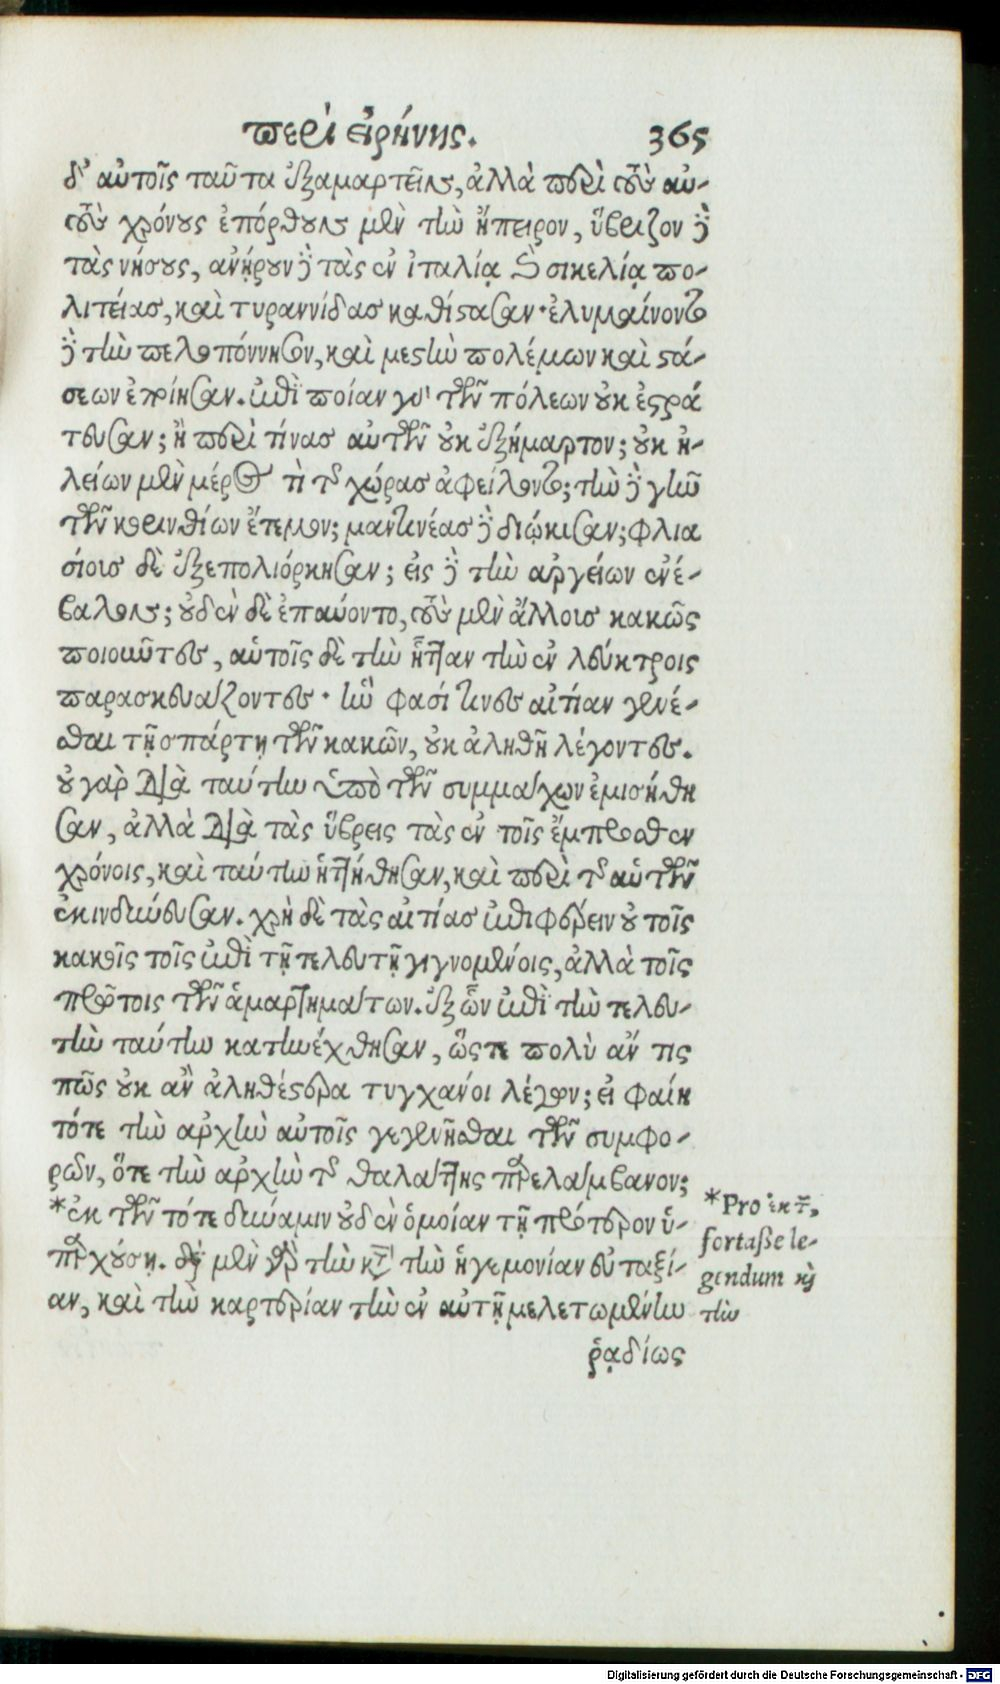 περὶ εἰρήνης. 365
δ' αὐτοῖς ταῦτα ἐξαμαρτεῖν, ἀλλὰ περὶ τοὺς αὐ-
τοὺς χρόνους ἐπόρθουν μὲν τὴν ἤπειρον, ὕβριζον δὲ
τὰς νήσους, ἀνῄρουν δὲ τὰς ἐν ἰταλίᾳ καὶ σικελίᾳ πο-
λιτείας, καὶ τυραννίδας καθίστασαν· ἐλυμαίνοντο
δὲ τὴν πελοπόννησον, καὶ μεστὴν πολέμων καὶ στά-
σεων ἐποίησαν. ἐπὶ ποίαν γὰρ τῶν πόλεων οὐκ ἐστρά
τευσαν; ἢ περὶ τίνας αὐτῶν οὐκ ἐξήμαρτον; οὐκ ἠ-
λείων μὲν μέρος τὶ τῆς χώρας ἀφείλοντο; τὴν δὲ γῆν
τῶν κορινθίων ἔτεμον; μαντινέας δὲ διῴκισαν; φλια
σίοις δὲ ἐξεπολιόρκησαν; εἰς δὲ τὴν ἀργείων ἐνέ-
βαλον; οὐδὲν δὲ ἐπαύοντο, τοὺς μὲν ἄλλοις κακῶς
ποιοῦντες, αὑτοῖς δὲ τὴν ἧτταν τὴν ἐν λεύκτροις
παρασκευάζοντες· ἣν φασί τινες αἰτίαν γενέ-
σθαι τῇ σπάρτῃ τῶν κακῶν, οὐκ ἀληθῆ λέγοντες.
οὐ γὰρ διὰ ταύτην ὑπὸ τῶν συμμάχων ἐμισήθη
σαν, ἀλλὰ διὰ τὰς ὕβρεις τὰς ἐν τοῖς ἔμπροσθεν
χρόνοις, καὶ ταύτην ἡττήθησαν, καὶ περὶ τῆς αὑτῶν
ἐκινδύνευσαν. χρὴ δὲ τὰς αἰτίας ἐπιφέρειν οὐ τοῖς
κακοῖς τοῖς ἐπὶ τῇ τελευτῇ γιγνομένοις, ἀλλὰ τοῖς
πρώτοις τῶν ἁμαρτημάτων. ἐξ ὧν ἐπὶ τὴν τελευ-
τὴν ταύτην κατηνέχθησαν, ὥστε πολὺ ἄν τις
πῶς οὐκ ἂν ἀληθέστερα τυγχάνοι λέγων; εἰ φαίη
τότε τὴν ἀρχὴν αὐτοῖς γεγενῆσθαι τῶν συμφο-
ρῶν, ὅτε τὴν ἀρχὴν τῆς θαλάττης παρελάμβανον;
*ἐκ τῶν τότε δύναμιν οὐδὲν ὁμοίαν τῇ πρότερον ὑ-
παρχούσῃ. διὰ μὲν γὰρ τὴν κατὰ τὴν ἡγεμονίαν εὐταξί-
αν, καὶ τὴν καρτερίαν τὴν ἐν αὐτῇ μελετωμένην
ῥᾳδίως
*Pro ἐκ τ῀,
fortaße le-
gendum καὶ
τὴν
Digitalisierung gefördert durch die Deutsche Forschungsgemeinschaft - DFG